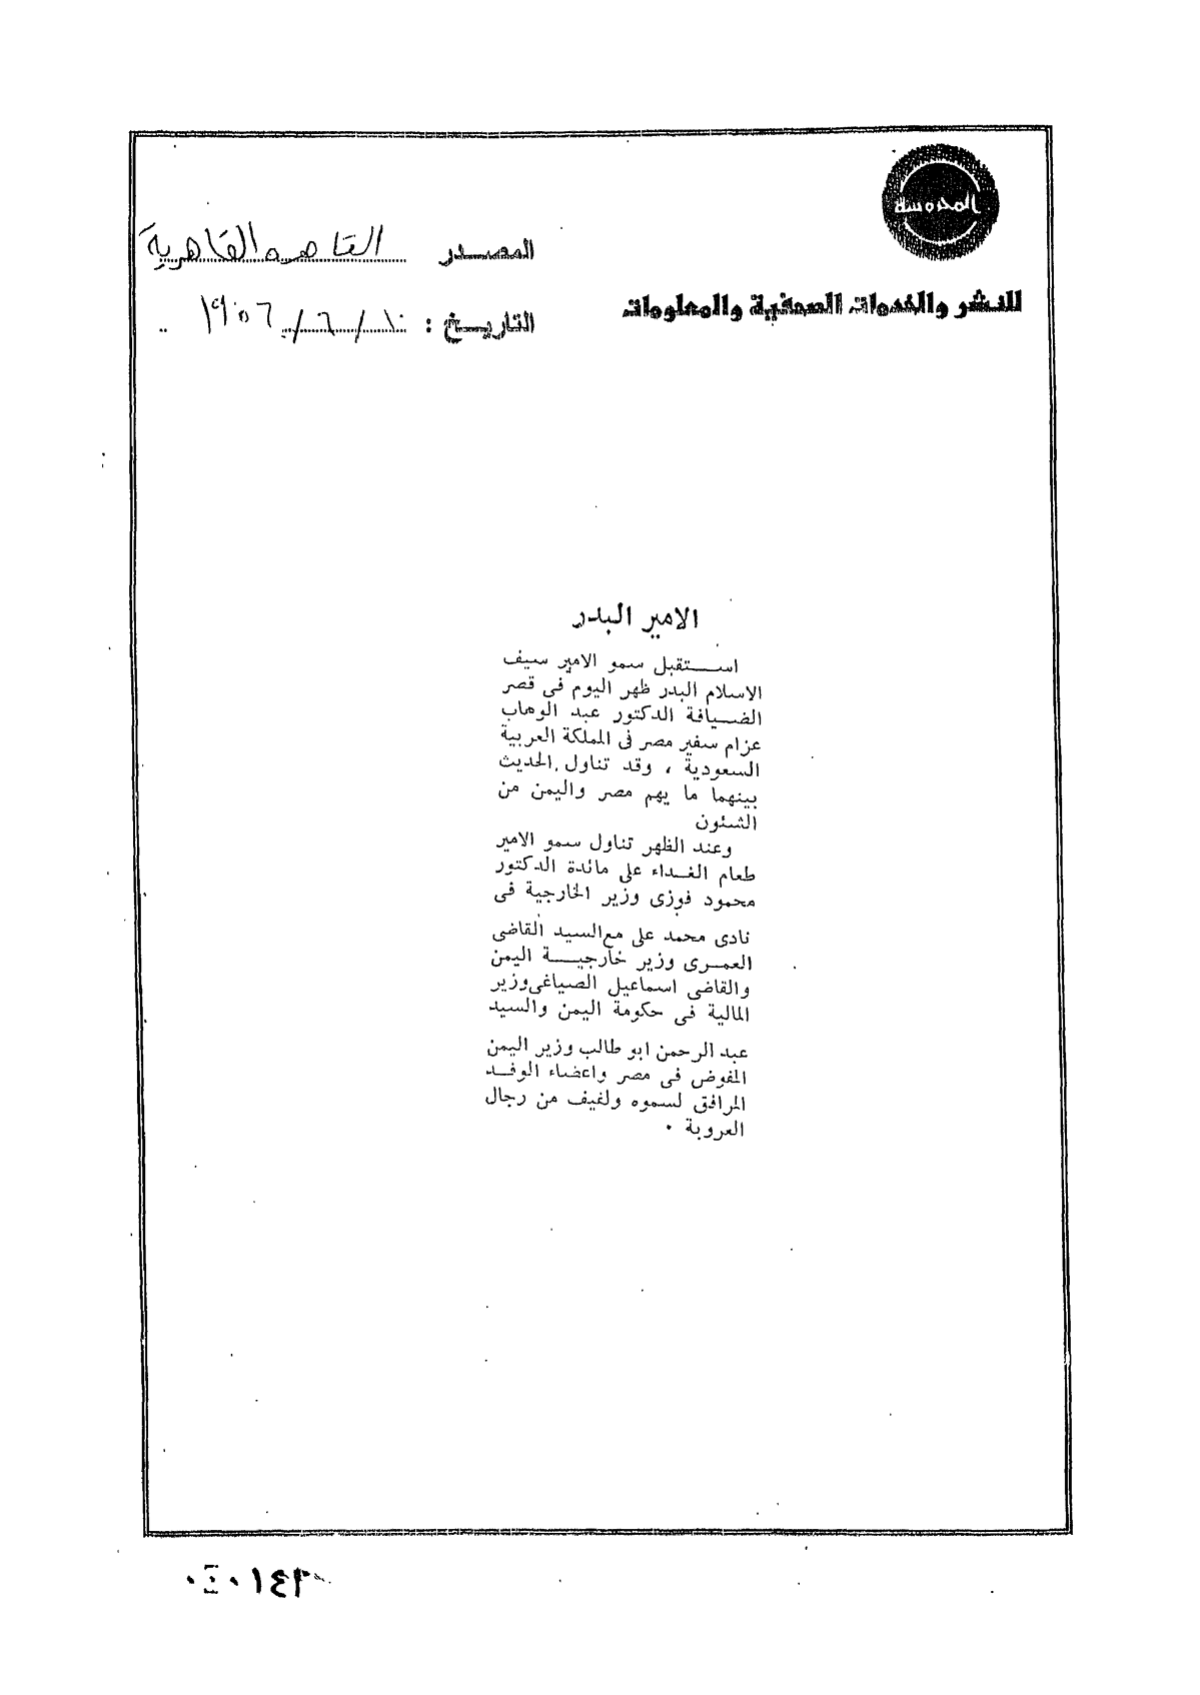 المحروسة
للنشر والخدمات الصحفية والمعلومات
المصدر القاهره القاهرية
التاريخ : ١٠/٦/١٩٥٦
الامير البدر
استقبل سمو الامير سيف
الاسلام البدر ظهر اليوم فى قصر
الضيافة الدكتور عبد الوهاب
عزام سفير مصر فى المملكة العربية
السعودية ، وقد تناول الحديث
بينهما ما يهم مصر واليمن من
الشئون
وعند الظهر تناول سمو الامير
طعام الغداء على مائدة الدكتور
محمود فوزى وزير الخارجية فى
نادى محمد على مع السيد القاضى
العمرى وزير خارجية اليمن
والقاضى اسماعيل الصياغى وزير
المالية فى حكومة اليمن والسيد
عبد الرحمن ابو طالب وزير اليمن
المفوض فى مصر واعضاء الوفد
المرافق لسموه ولفيف من رجال
العروبة .